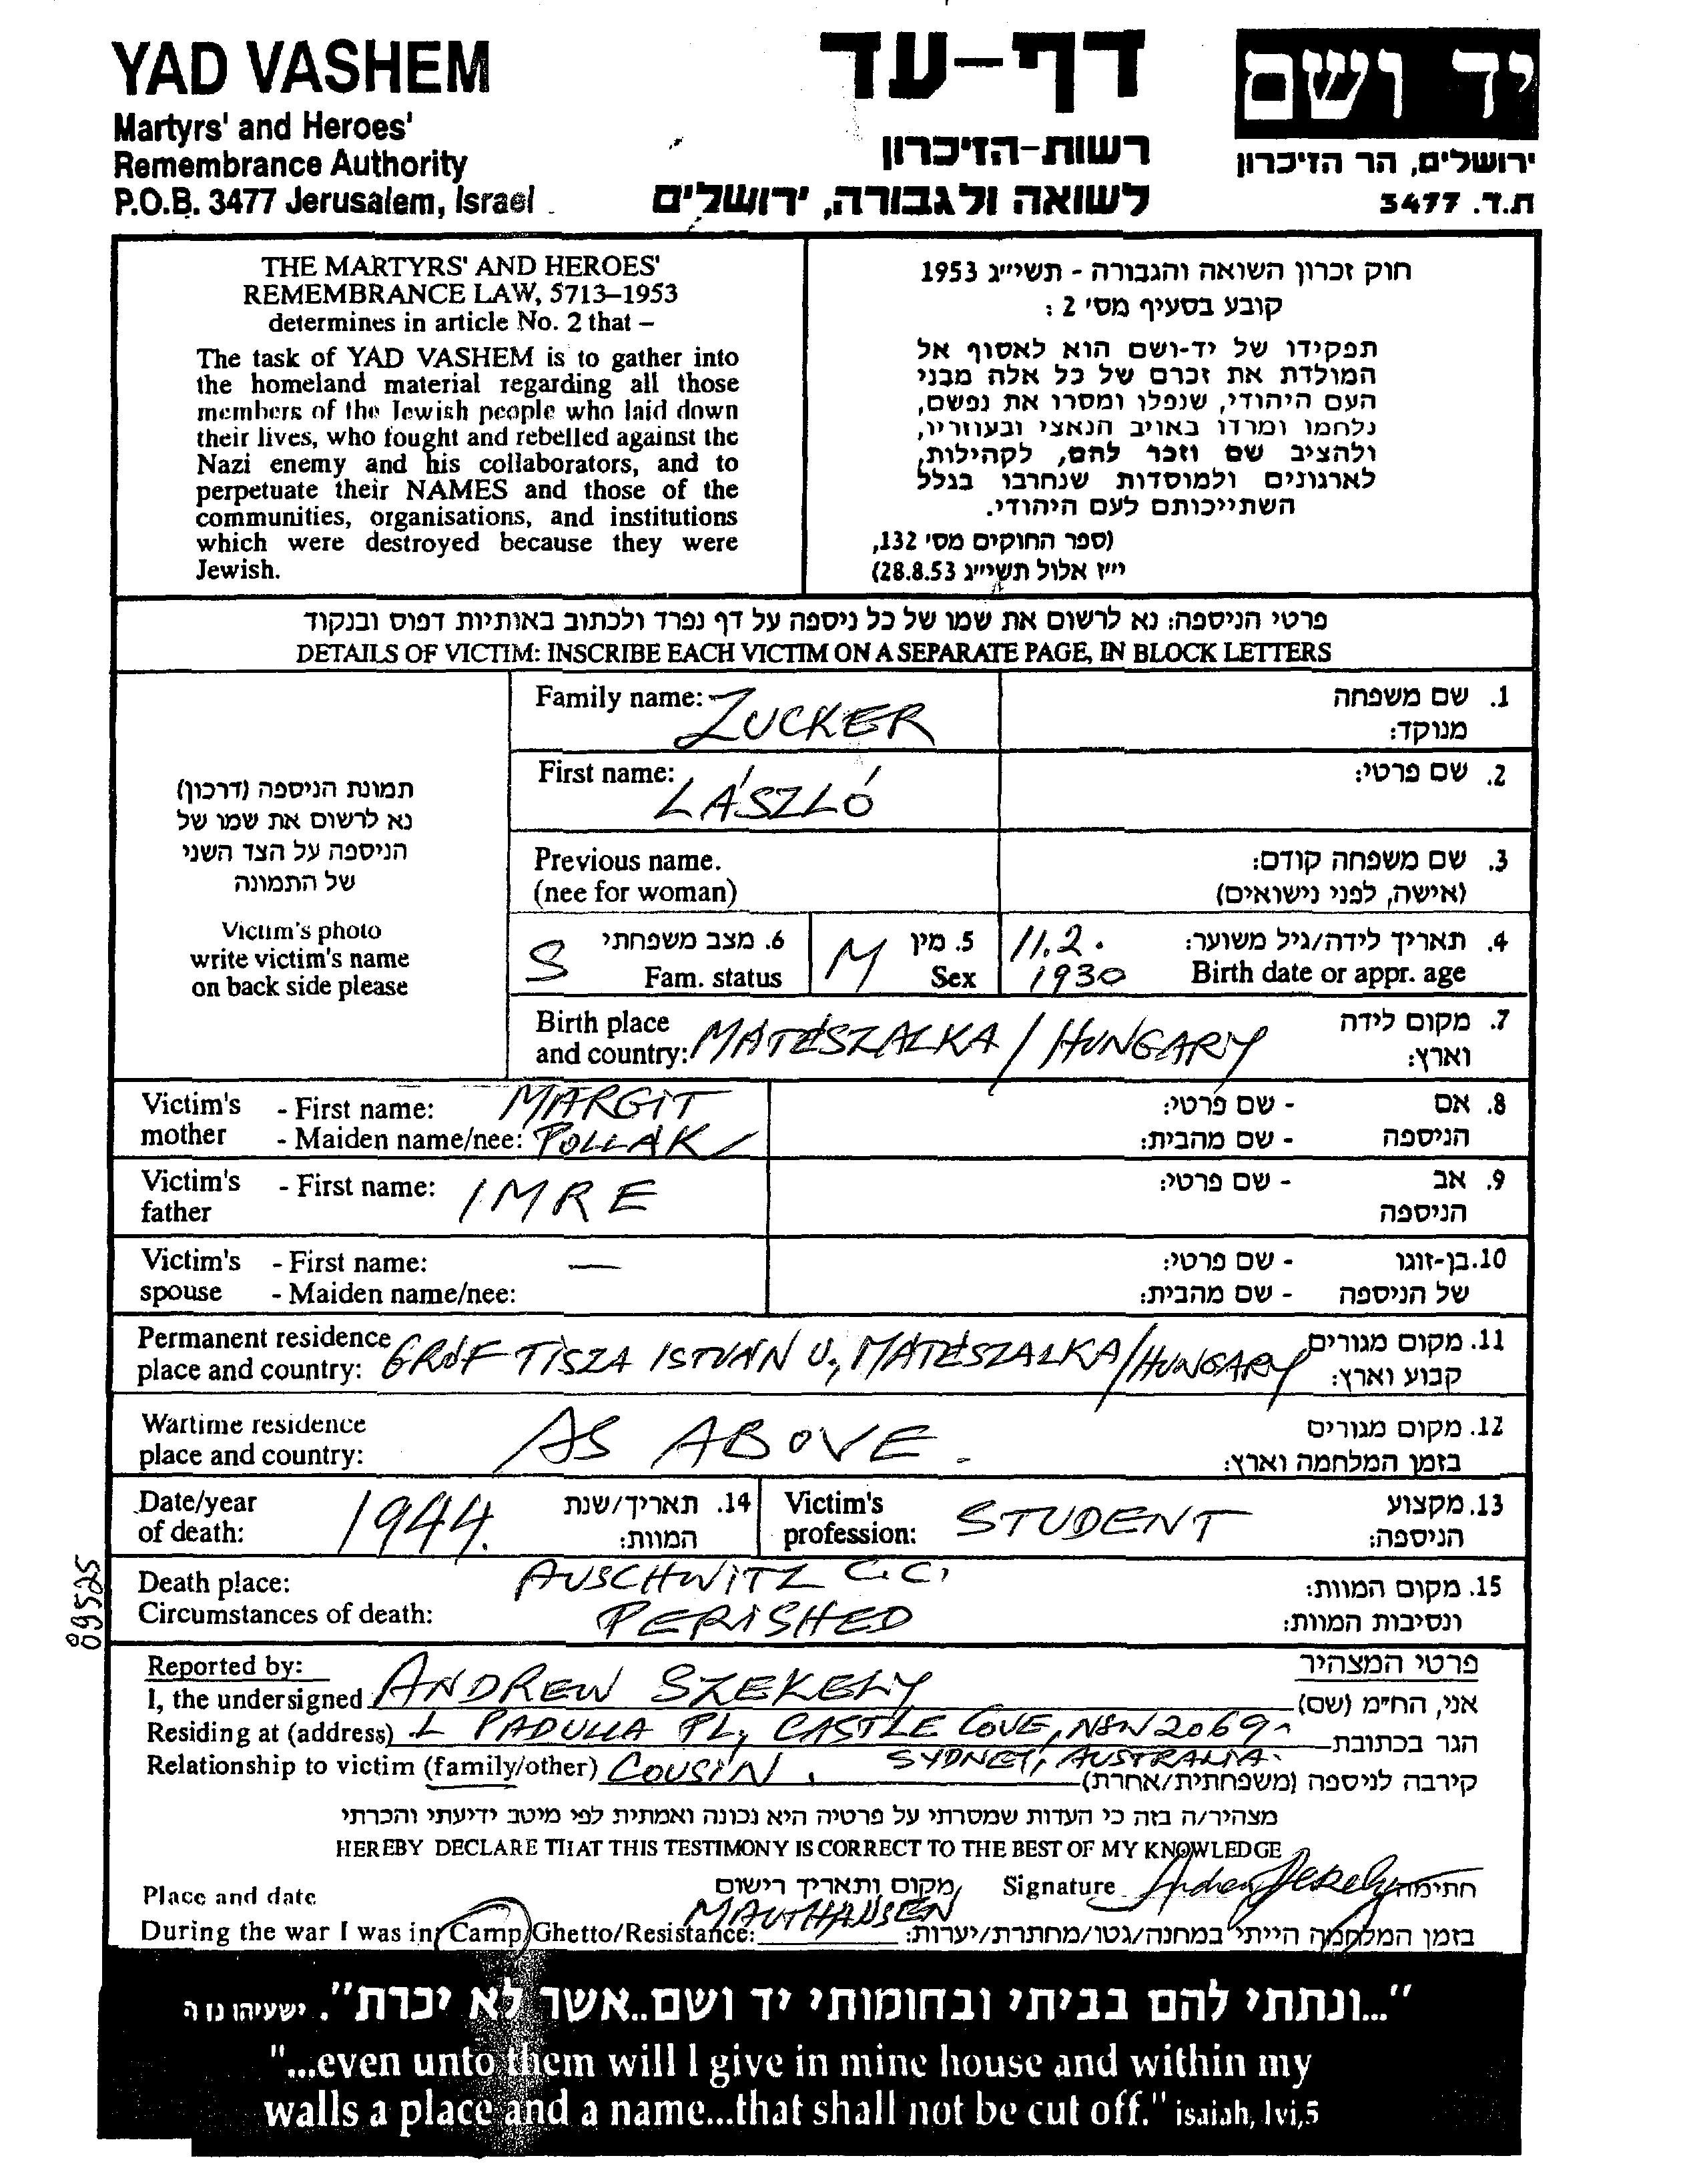 YAD VASHEM
Martyrs' and Heroes'
Remembrance Authority
P.O.B. 3477 Jerusalem, Israel
דף-עד
רשות-הזיכרון
לשואה ולגבורה, ירושלים
יד ושם
ירושלים, הר הזיכרון
ת.ד. 3477
THE MARTYRS' AND HEROES'
REMEMBRANCE LAW, 5713–1953
determines in article No. 2 that –
The task of YAD VASHEM is to gather into
the homeland material regarding all those
members of the Jewish people who laid down
their lives, who fought and rebelled against the
Nazi enemy and his collaborators, and to
perpetuate their NAMES and those of the
communities, organisations, and institutions
which were destroyed because they were
Jewish.
חוק זכרון השואה והגבורה - תשי״ג 1953
קובע בסעיף מס' 2 :
תפקידו של יד-ושם הוא לאסוף אל
המולדת את זכרם של כל אלה מבני
העם היהודי, שנפלו ומסרו את נפשם,
נלחמו ומרדו באויב הנאצי ובעוזריו,
ולהציב שם וזכר להם, לקהילות,
לארגונים ולמוסדות שנחרבו בגלל
השתייכותם לעם היהודי.
(ספר החוקים מס' 132,
י״ז אלול תשי״ג 28.8.53)
פרטי הניספה: נא לרשום את שמו של כל ניספה על דף נפרד ולכתוב באותיות דפוס ובנקוד
DETAILS OF VICTIM: INSCRIBE EACH VICTIM ON A SEPARATE PAGE, IN BLOCK LETTERS
תמונת הניספה (דרכון)
נא לרשום את שמו של
הניספה על הצד השני
של התמונה
Victim's photo
write victim's name
on back side please
Family name: ZUCKER 1. שם משפחה
מנוקד:
First name: LÁSZLÓ 2. שם פרטי:
Previous name. 3. שם משפחה קודם:
(nee for woman) (אישה, לפני נישואים)
S 6. מצב משפחתי M 5. מין 11.2. 4. תאריך לידה/גיל משוער:
Fam. status Sex 1930 Birth date or appr. age
Birth place 7. מקום לידה
and country: MÁTÉSZALKA / HUNGARY וארץ:
Victim's - First name: MARGIT - שם פרטי: 8. אם
mother - Maiden name/nee: POLLAK - שם מהבית: הניספה
Victim's - First name: IMRE - שם פרטי: 9. אב
father הניספה
Victim's - First name: — - שם פרטי: 10. בן-זוגו
spouse - Maiden name/nee: - שם מהבית: של הניספה
Permanent residence 11. מקום מגורים
place and country: GRÓF TISZA ISTVÁN U., MÁTÉSZALKA/HUNGARY קבוע וארץ:
Wartime residence 12. מקום מגורים
place and country: AS ABOVE. בזמן המלחמה וארץ:
Date/year 1944. 14. תאריך/שנת Victim's STUDENT 13. מקצוע
of death: המוות: profession: הניספה:
Death place: AUSCHWITZ C.C. 15. מקום המוות:
Circumstances of death: PERISHED ונסיבות המוות:
09525
Reported by: פרטי המצהיר
I, the undersigned ANDREW SZEKELY אני, הח״מ (שם)
Residing at (address) 1 PADULLA PL, CASTLE COVE, NSW 2069 הגר בכתובת
SYDNEY, AUSTRALIA.
Relationship to victim (family/other) COUSIN. קירבה לניספה (משפחתית/אחרת)
מצהיר/ה בזה כי העדות שמסרתי על פרטיה היא נכונה ואמתית לפי מיטב ידיעתי והכרתי
HEREBY DECLARE THAT THIS TESTIMONY IS CORRECT TO THE BEST OF MY KNOWLEDGE
Place and date מקום ותאריך רישום Signature Andrew Szekely חתימה
During the war I was in Camp/Ghetto/Resistance: MAUTHAUSEN בזמן המלחמה הייתי במחנה/גטו/מחתרת/יערות:
"...ונתתי להם בביתי ובחומותי יד ושם..אשר לא יכרת". ישעיהו נו ה
"...even unto them will I give in mine house and within my
walls a place and a name...that shall not be cut off." isaiah, lvi,5